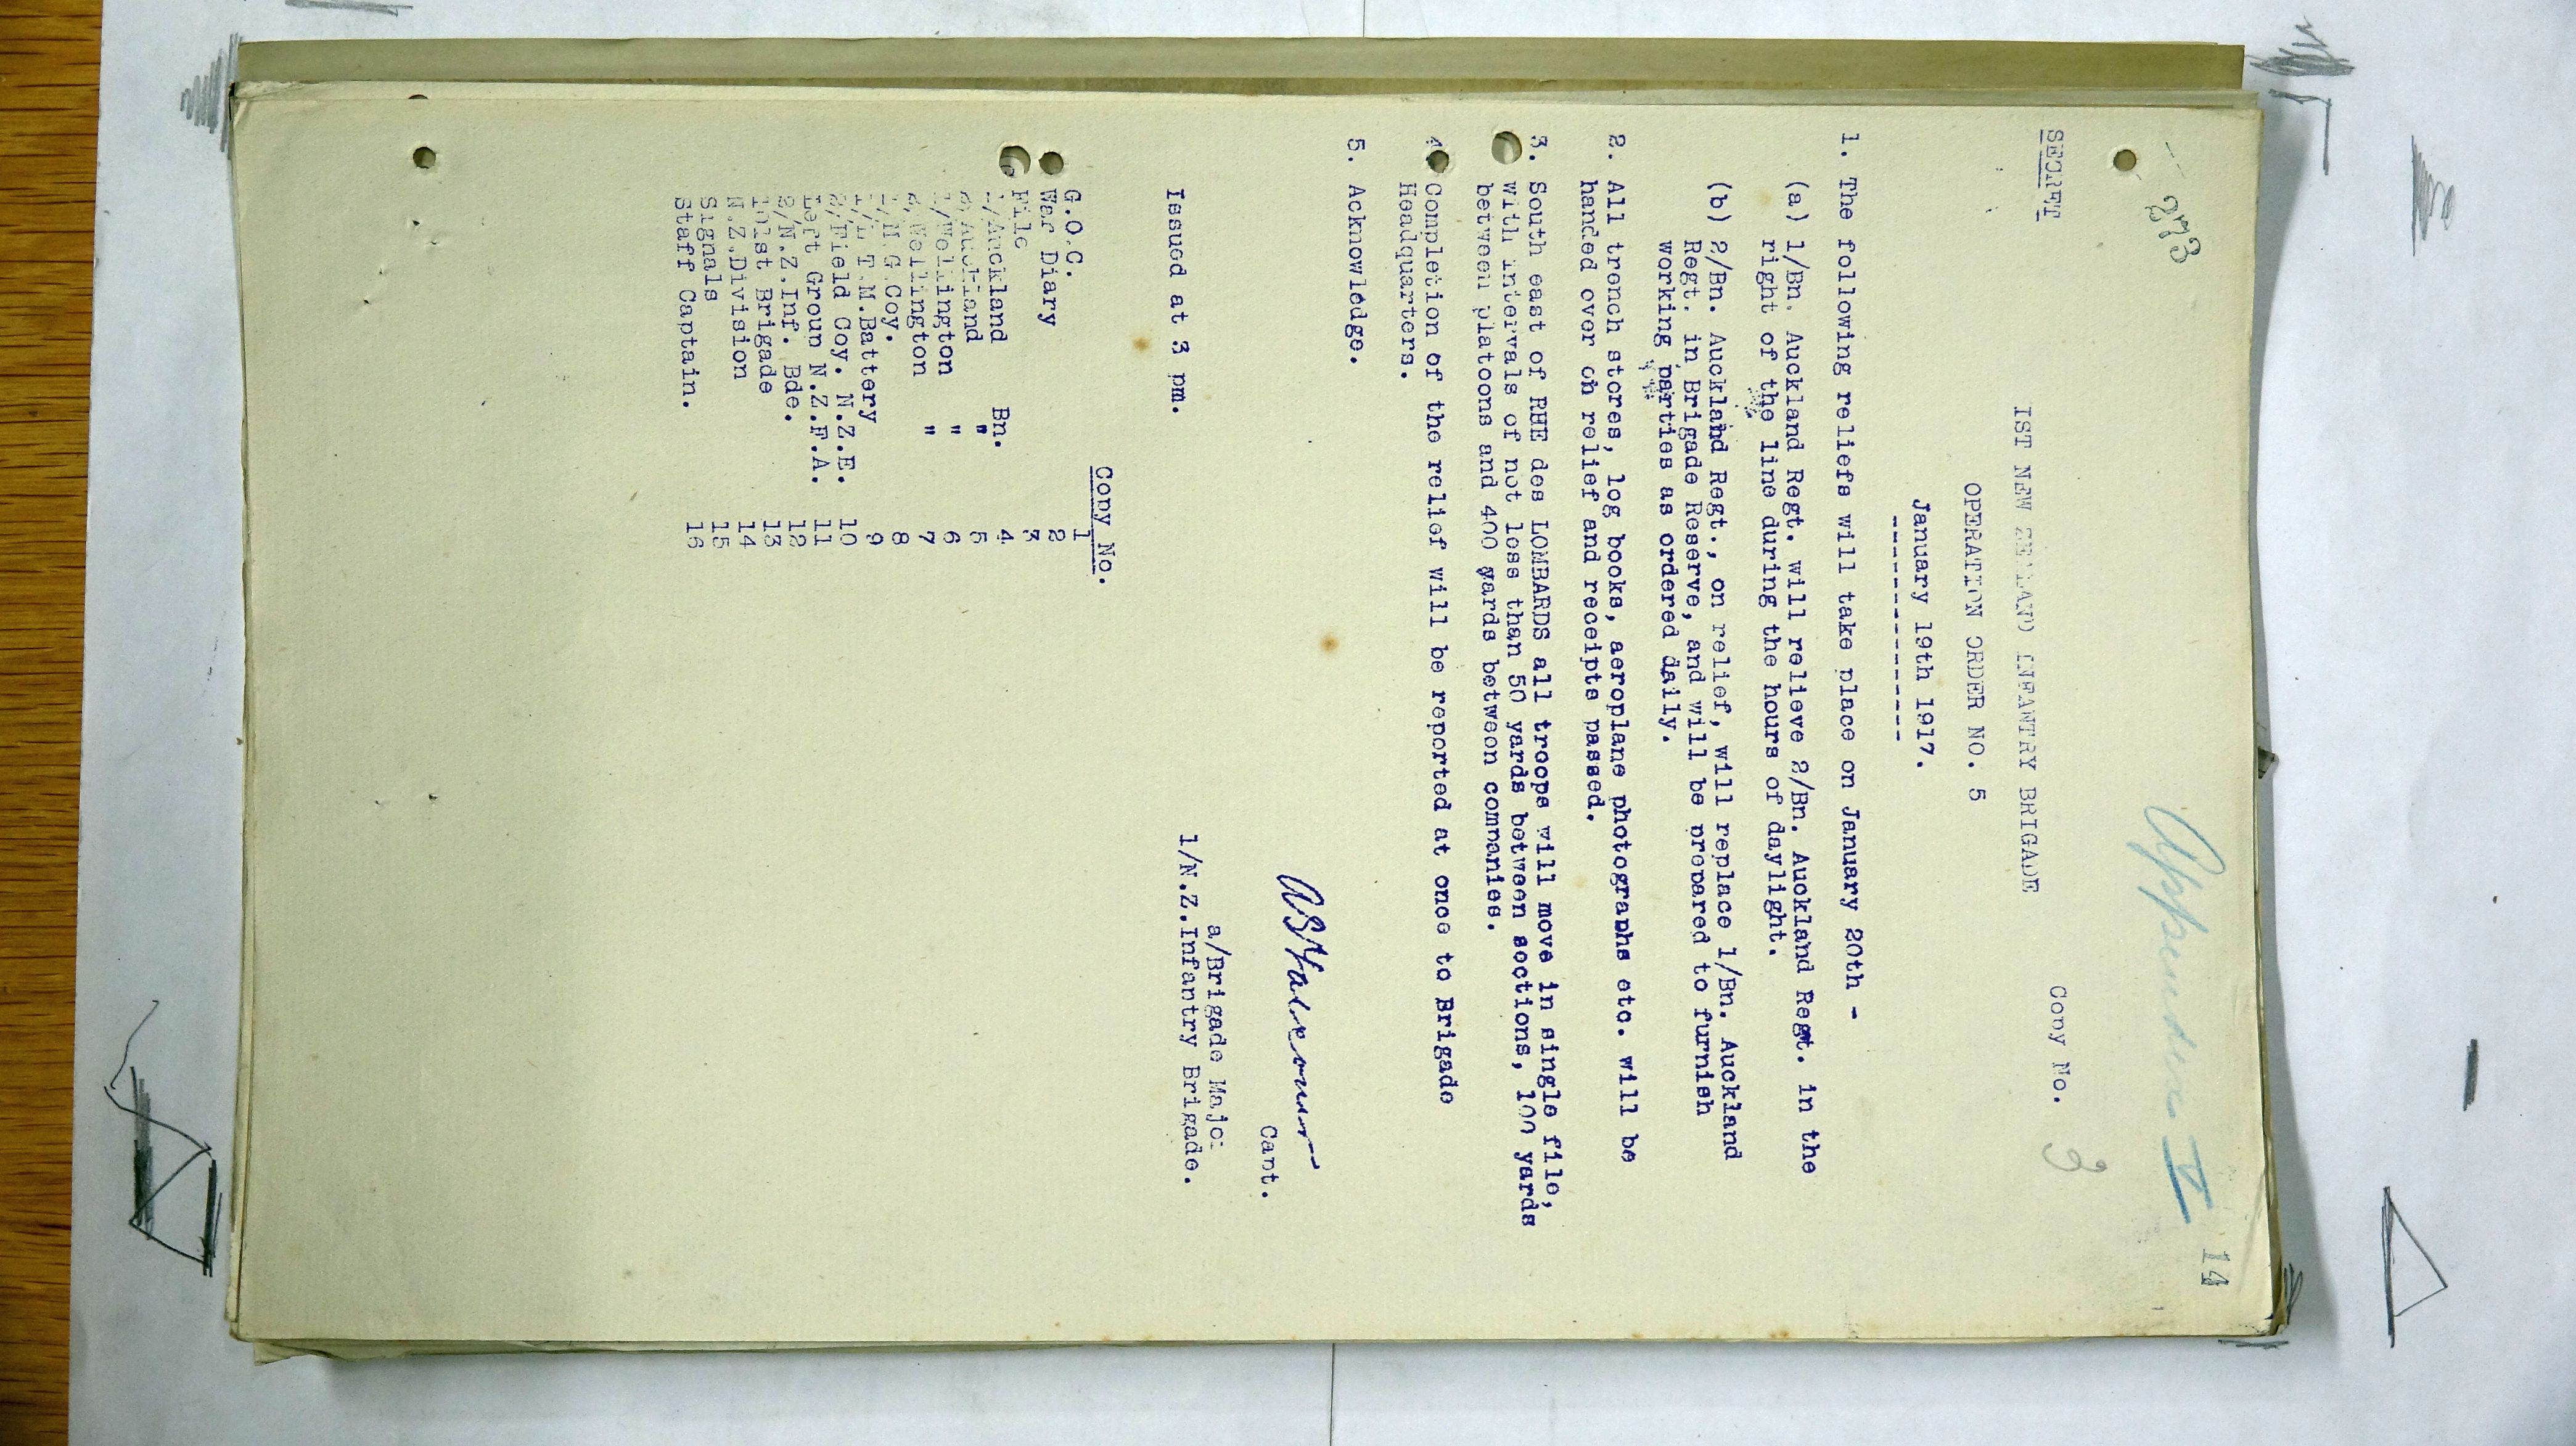 873
Appendix V
14
SECRET
Copy No. 3
1ST NEW ZEALAND INFANTRY BRIGADE
OPERATION ORDER NO. 5
January 19th 1917.
--------------
1. The following reliefs will take place on January 20th -
(a) 1/Bn. Auckland Regt. will relieve 2/Bn. Auckland Regt. in the
right of the line during the hours of daylight.
(b) 2/Bn. Auckland Regt., on relief, will replace 1/Bn. Auckland
Regt. in Brigade Reserve, and will be prepared to furnish
working parties as ordered daily.
2. All trench stores, log books, aeroplane photographs etc. will be
handed over on relief and receipts passed.
3. South east of RHE des LOMBARDS all troops will move in single file,
with intervals of not less than 50 yards between sections, 100 yards
between platoons and 400 yards between companies.
4. Completion of the relief will be reported at once to Brigade
Headquarters.
5. Acknowledge.
Capt.
a/Brigade Major
Issued at 3 pm. 1/N.Z.Infantry Brigade.
Copy No.
G.O.C. 1
War Diary 2
File 3
1/Auckland Bn. 4
2/Auckland " 5
1/Wellington " 6
2/Wellington " 7
1/M.G.Coy. 8
1/L.T.M.Battery 9
2/Field Coy. N.Z.E. 10
Left Group N.Z.F.A. 11
2/N.Z.Inf. Bde. 12
101st Brigade 13
N.Z.Division 14
Signals 15
Staff Captain. 16